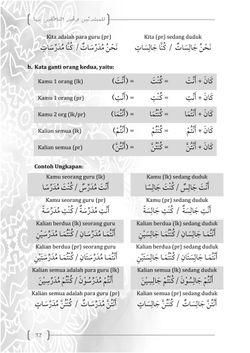 Kita adalah para guru (pr)
Kita (pr) sedang duduk
نَحْنُ مُدَرِّسَاتٌ / كُنَّا مُدَرِّسَاتٍ
نَحْنُ جَالِسَاتٌ / كُنَّا جَالِسَاتٍ
b. Kata ganti orang kedua, yaitu:
Kamu 1 orang (lk) (أَنْتَ) = كُنْتَ = كَانَ + أَنْتَ
Kamu 1 orang (pr) (أَنْتِ) = كُنْتِ = كَانَ + أَنْتِ
Kamu 2 org (lk/pr) (أَنْتُمَا) = كُنْتُمَا = كَانَ + أَنْتُمَا
Kalian semua (lk) (أَنْتُمْ) = كُنْتُمْ = كَانَ + أَنْتُمْ
Kalian semua (pr) (أَنْتُنَّ) = كُنْتُنَّ = كَانَ + أَنْتُنَّ
Contoh Ungkapan:
Kamu seorang guru (lk)
Kamu (lk) sedang duduk
أَنْتَ مُدَرِّسٌ / كُنْتَ مُدَرِّسًا
أَنْتَ جَالِسٌ / كُنْتَ جَالِسًا
Kamu seorang guru (pr)
Kamu (pr) sedang duduk
أَنْتِ مُدَرِّسَةٌ / كُنْتِ مُدَرِّسَةً
أَنْتِ جَالِسَةٌ / كُنْتِ جَالِسَةً
Kalian berdua (lk) seorang guru
Kalian berdua (lk) sedang duduk
أَنْتُمَا مُدَرِّسَانِ / كُنْتُمَا مُدَرِّسَيْنِ
أَنْتُمَا جَالِسَانِ / كُنْتُمَا جَالِسَيْنِ
Kalian berdua (pr) seorang guru
Kalian berdua (pr) sedang duduk
أَنْتُمَا مُدَرِّسَتَانِ / كُنْتُمَا مُدَرِّسَتَيْنِ
أَنْتُمَا جَالِسَتَانِ / كُنْتُمَا جَالِسَتَيْنِ
Kalian semua adalah para guru (lk)
Kalian semua (lk) sedang duduk
أَنْتُمْ مُدَرِّسُوْنَ / كُنْتُمْ مُدَرِّسِيْنَ
أَنْتُمْ جَالِسُوْنَ / كُنْتُمْ جَالِسِيْنَ
Kalian semua adalah para guru (pr)
Kalian semua (pr) sedang duduk
أَنْتُنَّ مُدَرِّسَاتٌ / كُنْتُنَّ مُدَرِّسَاتٍ
أَنْتُنَّ جَالِسَاتٌ / كُنْتُنَّ جَالِسَاتٍ